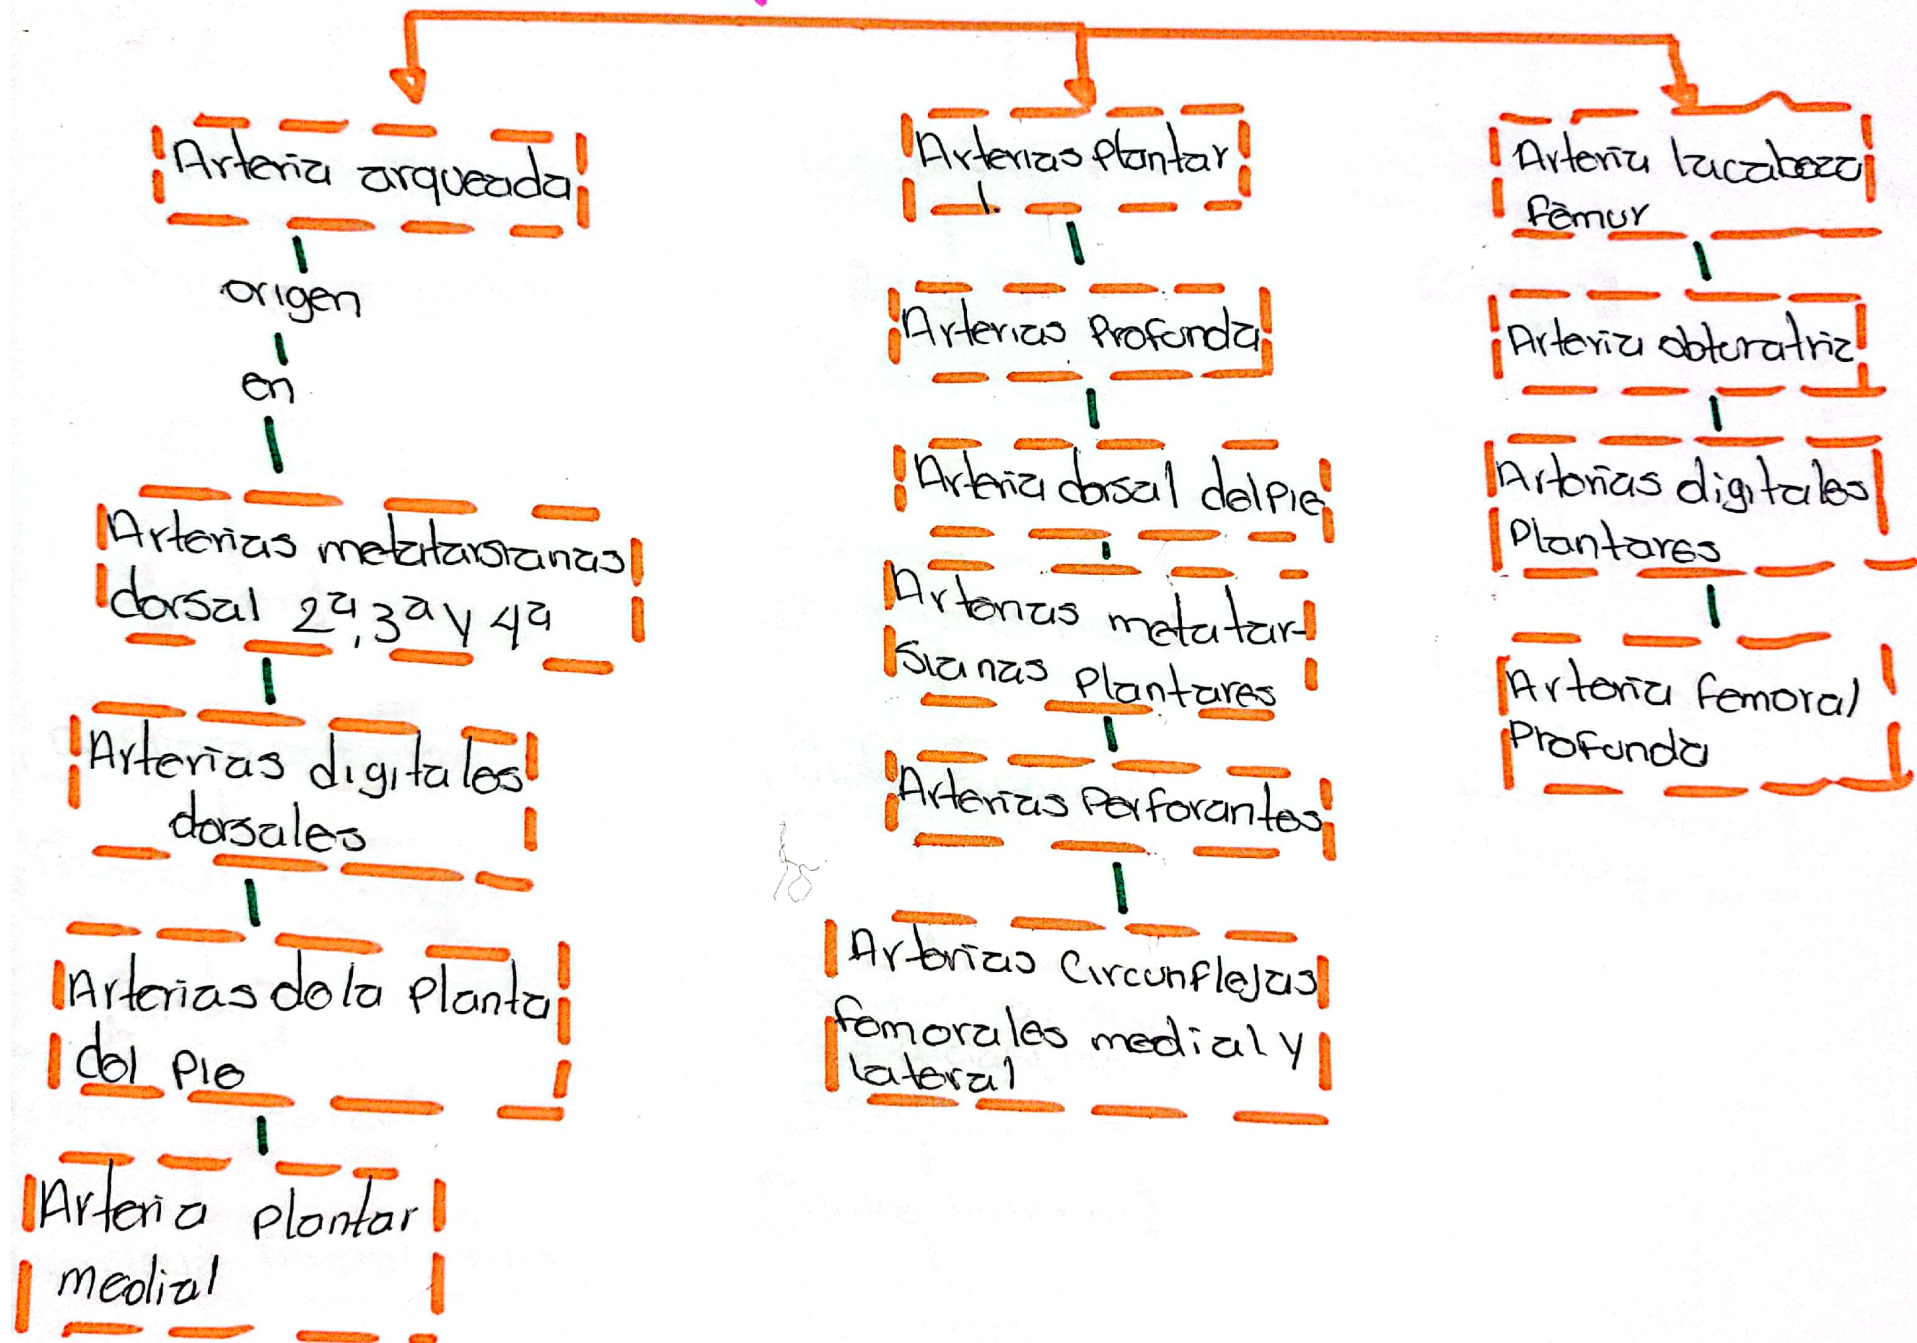 Arteria arqueada
origen
en
Arterias metatarsianas
dorsal 2ª, 3ª y 4ª
Arterias digitales
dorsales
Arterias de la Planta
del Pie
Arteria plantar
medial
Arterias Plantar
Arterias Profunda
Arteria dorsal del Pie
Arterias metatar-
sianas Plantares
Arterias Perforantes
Arterias Circunflejas
femorales medial y
lateral
Arteria lacabeza
fémur
Arteria obturatriz
Arterias digitales
Plantares
Arteria femoral
Profunda